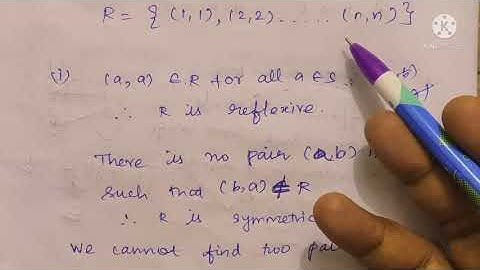 R = { (1,1), (2,2) ...... (n,n) }
(1) (a,a) ∈ R for all a ∈ S b)
∴ R is reflexive.
There is no pair (a,b)
such that (b,a) ∉ R
∴ R is symmetric
We cannot find two